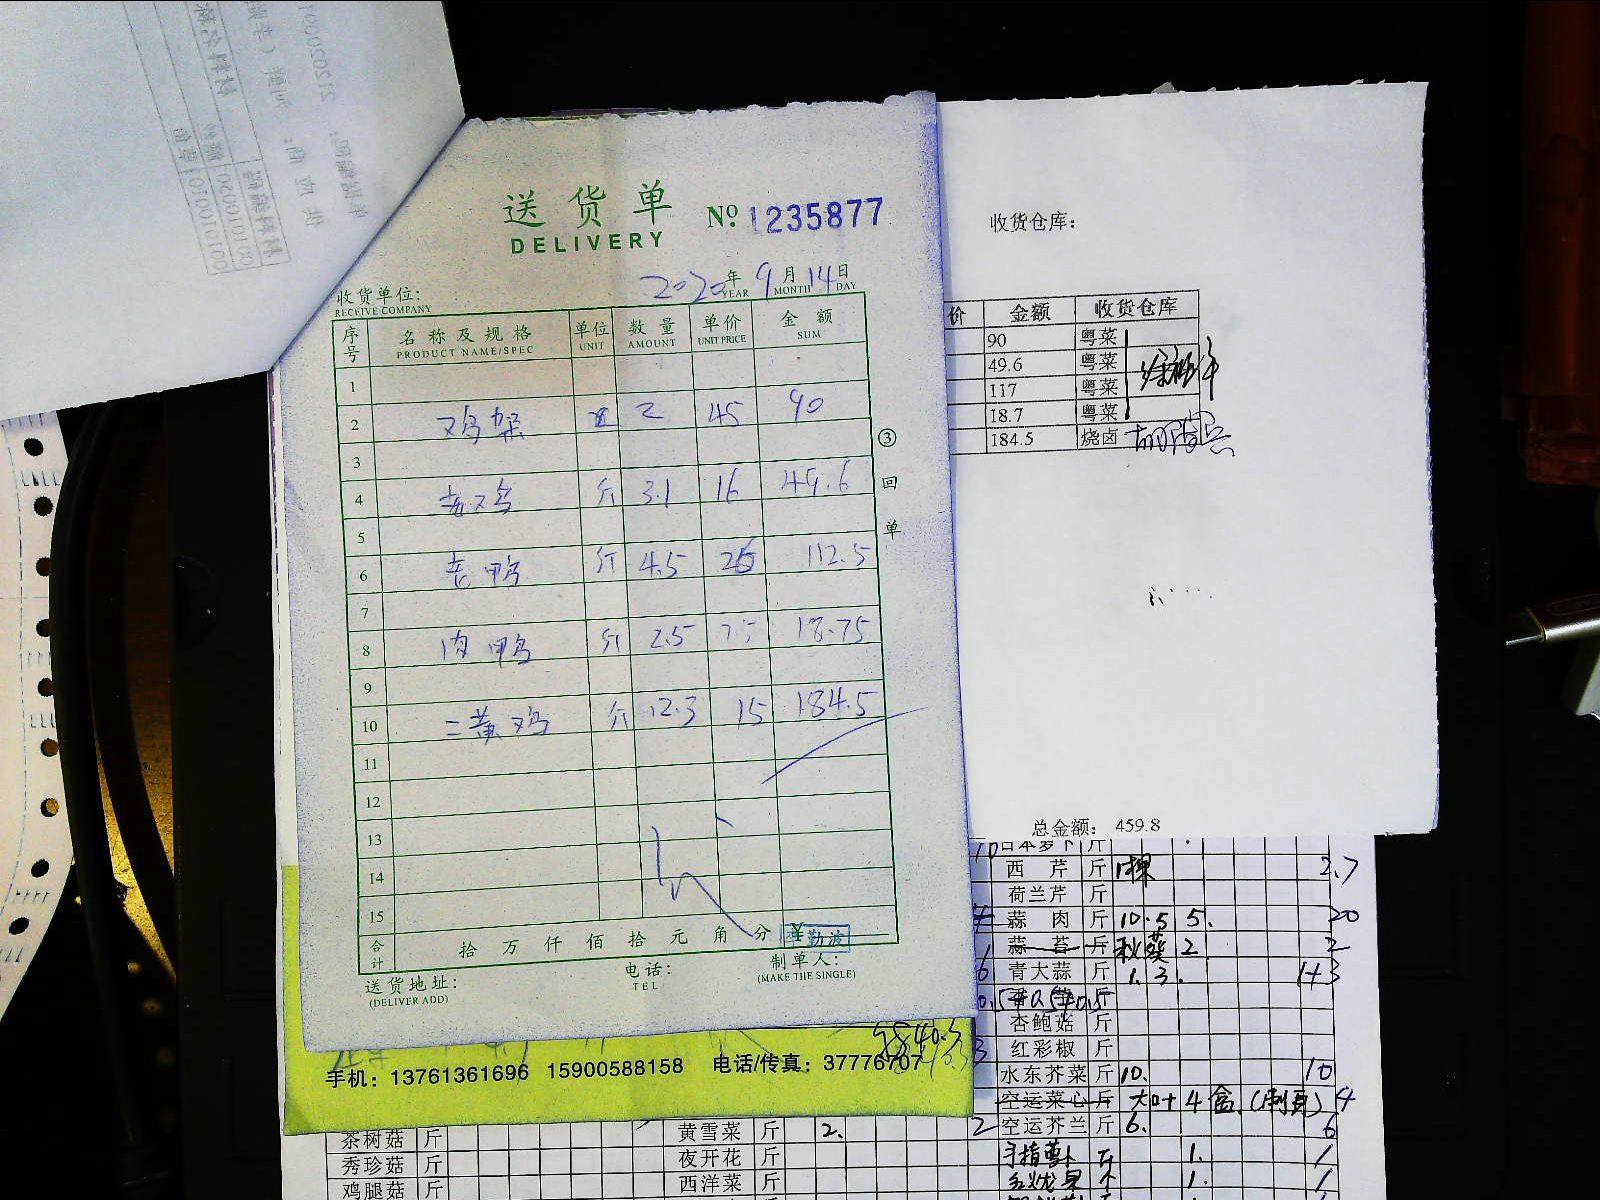 送货单
DELIVERY
№ 1235877
2020年9月14日
YEAR MONTH DAY
收货单位:
RECEIVE COMPANY
序号 名称及规格 单位 数量 单价 金额
PRODUCT NAME/SPEC UNIT AMOUNT UNIT PRICE SUM
1
2 鸡架 2 45 90
3
4 老鸡 斤 3.1 16 49.6
5
6 老鸭 斤 4.5 112.5
7
8 肉鸭 斤 2.5 18.75
9
10 三黄鸡 斤 12.3 15 184.5
11
12
13
14
15
合计 拾万仟佰拾元角分 ¥
③回单
送货地址:
(DELIVER ADD)
电话:
TEL
制单人:
(MAKE THE SINGLE)
手机: 13761361696 15900588158 电话/传真: 37776707
收货仓库:
价 金额 收货仓库
90 粤菜
49.6 粤菜
117 粤菜
18.7 粤菜
184.5 烧卤
总金额: 459.8
日本萝卜 斤
西芹 斤 1棵 2.7
荷兰芹 斤
蒜肉 斤 10.5 5. 20
蒜苔 斤 秋葵 2 2
青大蒜 斤 1.3. 1+3
杏鲍菇 斤
红彩椒 斤
水东芥菜 斤 10. 10
空运菜心 斤 4盒 4
空运芥兰 斤 6. 6
手指萝卜 斤 1. 1
茶树菇 斤 黄雪菜 斤 2. 2
秀珍菇 斤 夜开花 斤
鸡腿菇 斤 西洋菜 斤